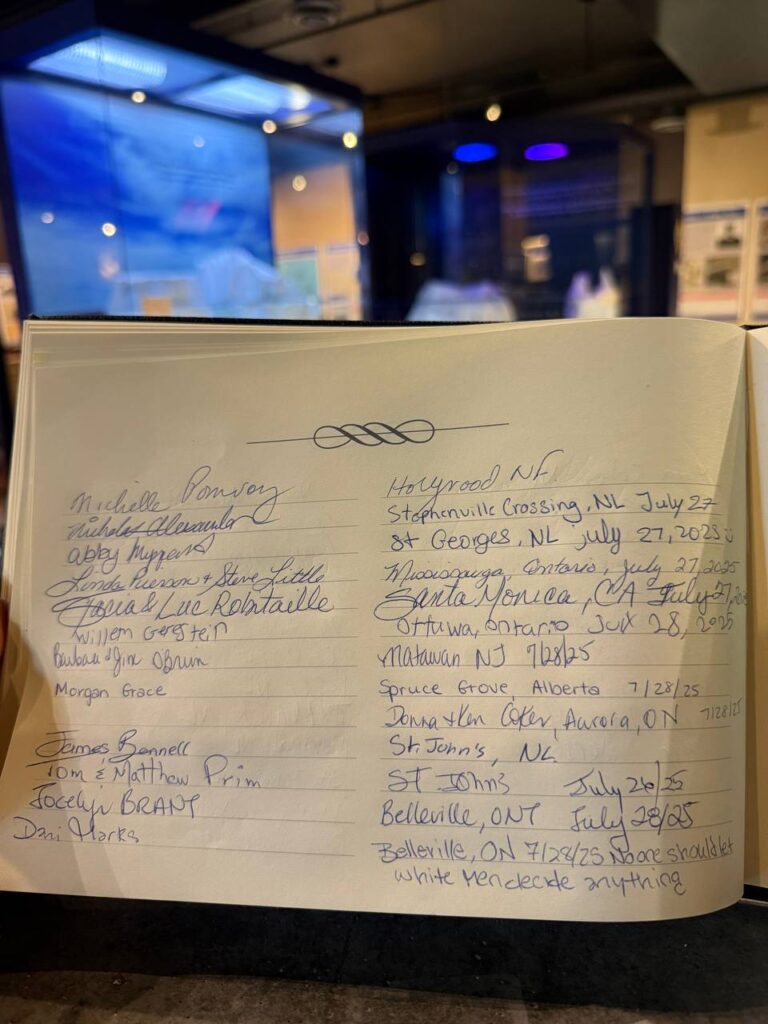 Michelle Pomroy Holyrood NF.
Nicholas Alexander Stephenville Crossing, NL July 27
Abby St Georges, NL july 27, 2025
Linda Pierson & Steve Little Mississauga, Ontario, July 27, 2025
& Luc Robitaille Santa Monica, CA July 27, 2025
Willem Gerstein Ottuwa, ontario July 28, 2025
Barbara & Jim O'Brien Matawan NJ 7/28/25
Morgan Grace Spruce Grove, Alberta 7/28/25
Donna & Ken Coker, Aurora, ON 7/28/25
James Bennell St. John's, NL
Tom & Matthew Prim ST John's July 26/25
Jocelyn BRANT Belleville, ONT July 28/25
Dani Marks Belleville, ON 7/28/25 No one should let
white men decide anything